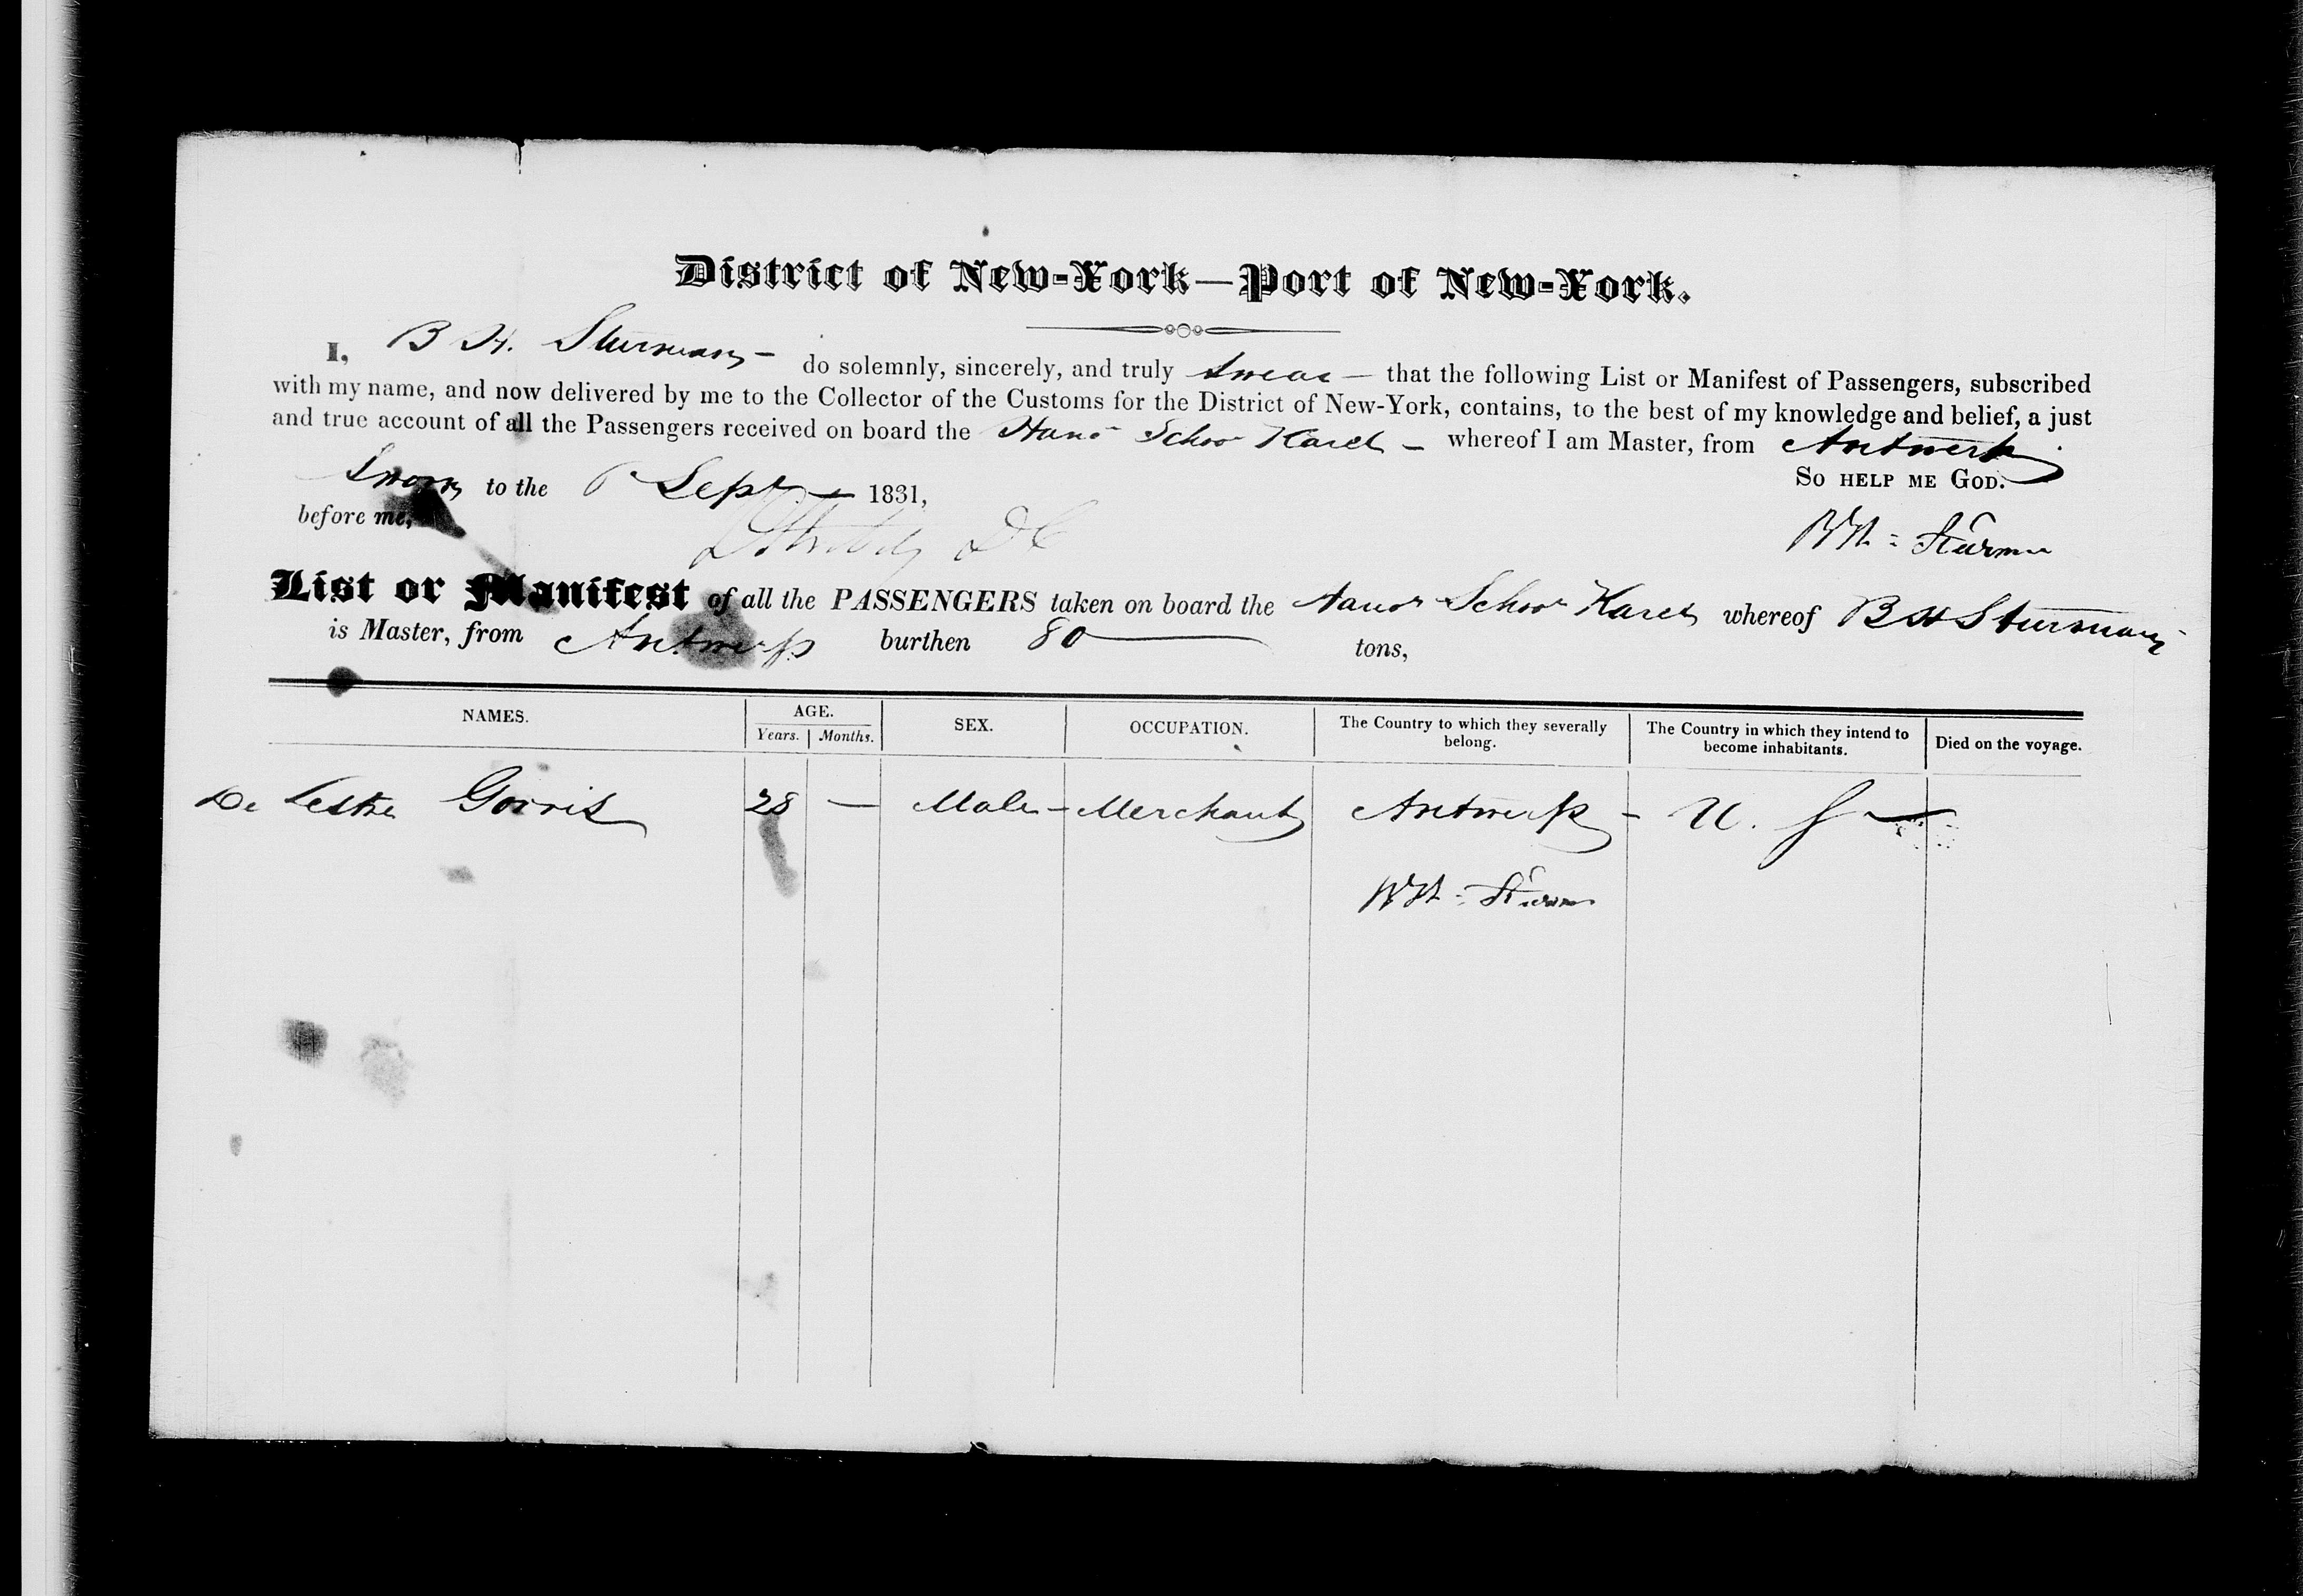 District of New-York—Port of New-York.
I, B H. Sturmann – do solemnly, sincerely, and truly swear – that the following List or Manifest of Passengers, subscribed
with my name, and now delivered by me to the Collector of the Customs for the District of New-York, contains, to the best of my knowledge and belief, a just
and true account of all the Passengers received on board the Hanor Schoor Karel – whereof I am Master, from Antwerp
So help me God.
Sworn to the 6 Sept – 1831,
before me,
List or Manifest of all the PASSENGERS taken on board the Hanor Schoor Karel whereof B H Sturmann
is Master, from Antwerp burthen 80 tons,
NAMES. AGE. SEX. OCCUPATION. The Country to which they severally belong. The Country in which they intend to become inhabitants. Died on the voyage.
Years. Months.
De Goiris 28 — Male – Merchant Antwerp – U. S